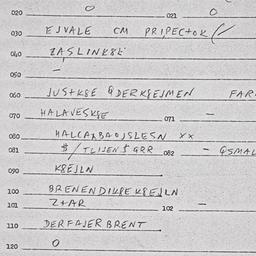 020 0 021 0
030 EJVALE CM PRIPECTOK
040 ZASLINKSE
050 –
060 JUSTKSE & DERKSEJMEN FAR
070 HALAVESKSE 071 –
080 HALCAXBAOJSLESN XX
081 $/TLIJEN $ GRR 082 – GSMAL
090 KSEJLN
100 BRENENDIKSEKSEJLN
101 Z+AR 102 –
110 DERFAJERBRENT
120 0